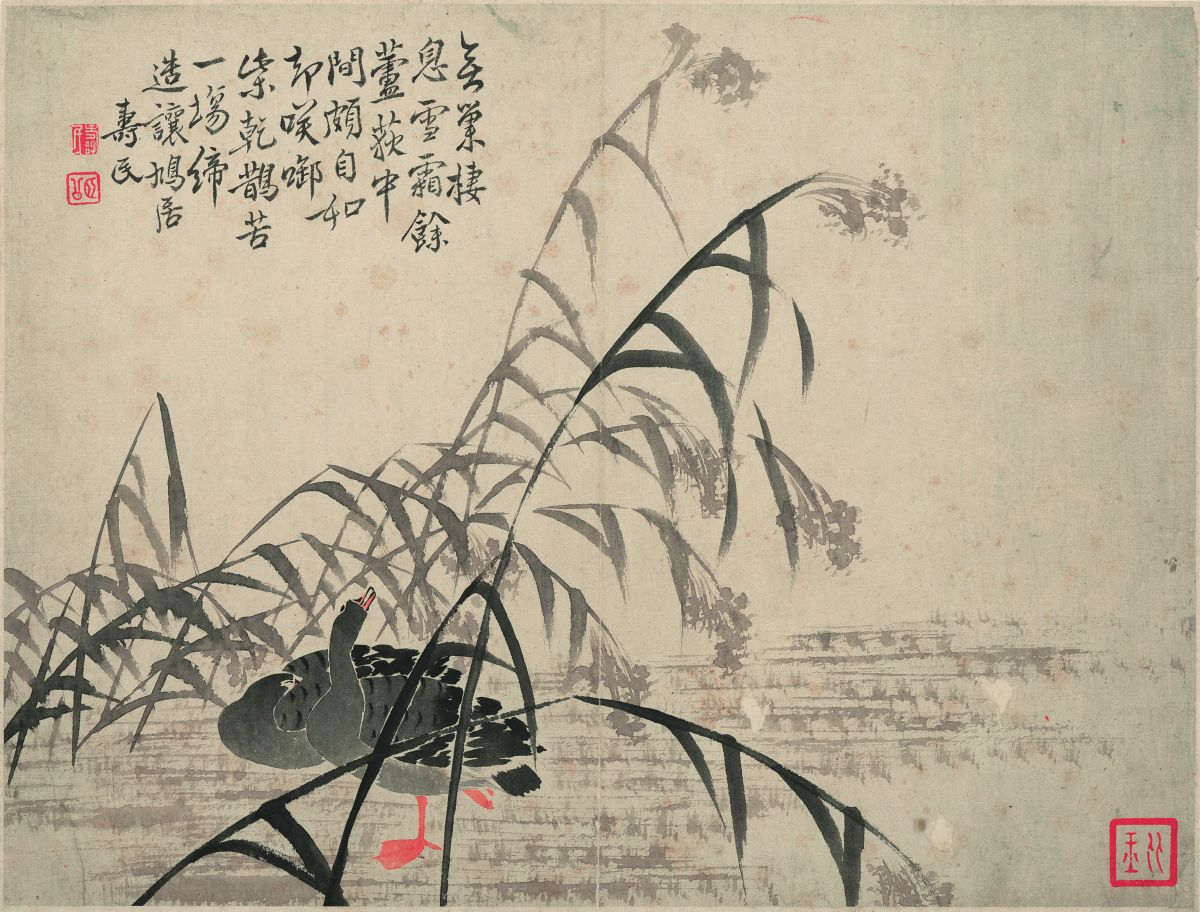 無巢棲
息雪霜餘
蘆荻中
間頗自如
却咲啣
柴乾鵲苦
一塲締
造讓鳩居
壽民